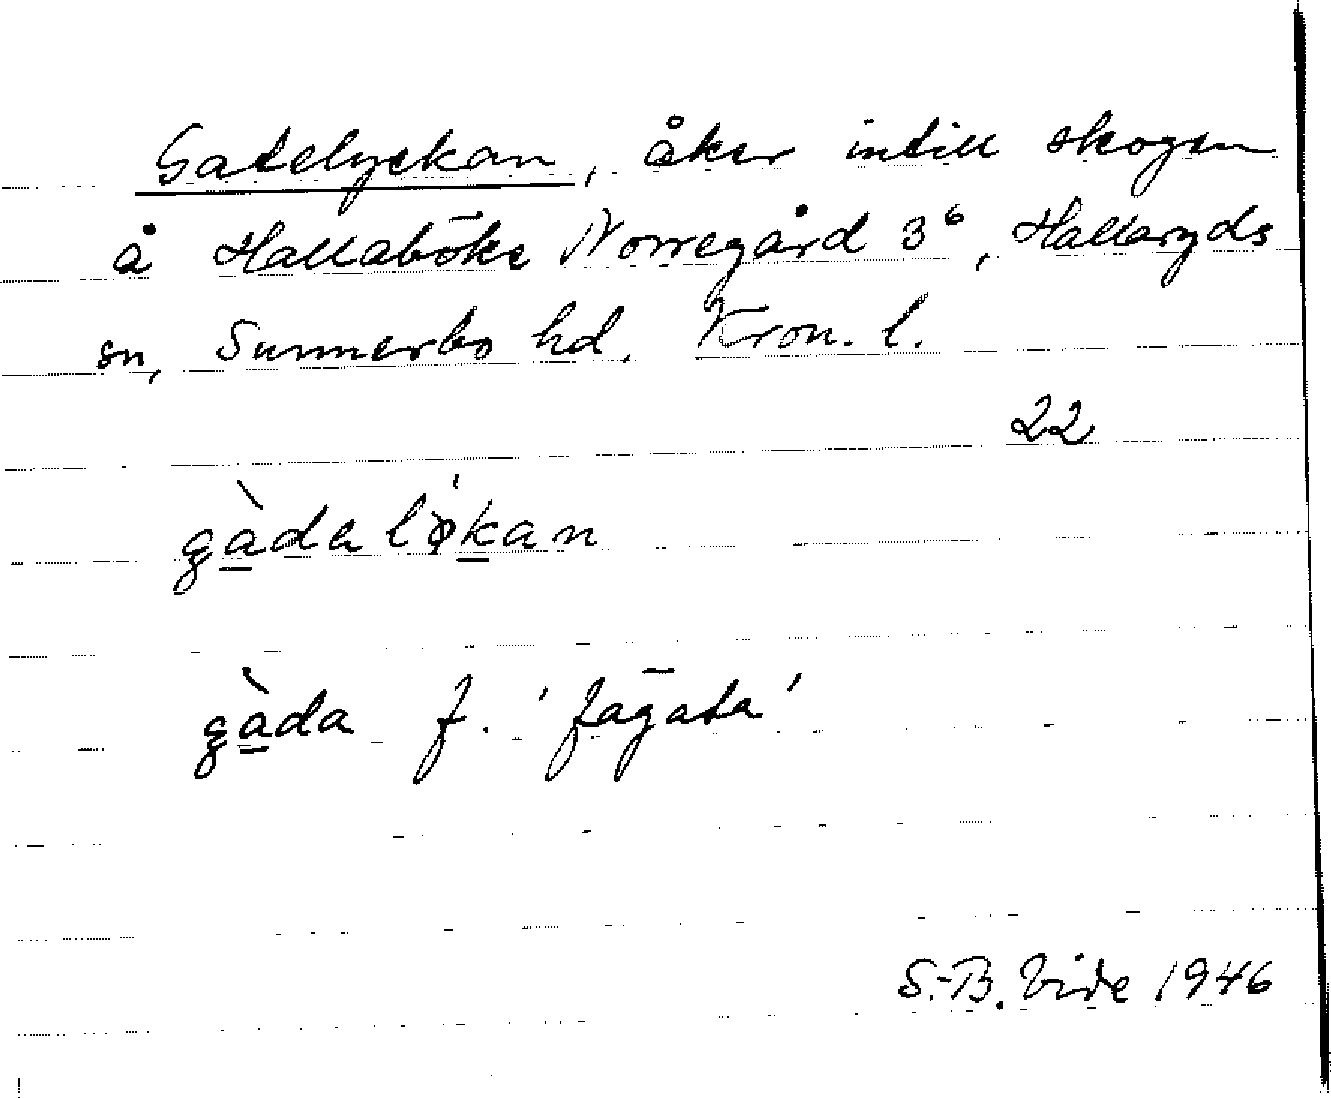 Gatelyckan, åker intill skogen
å Hallaböke Norregård 3⁶, Hallaryds
sn, Sunnerbo hd. Kron. l.
22
gàdaløkan
gàda f. 'fägata'
S.-B. Vide 1946